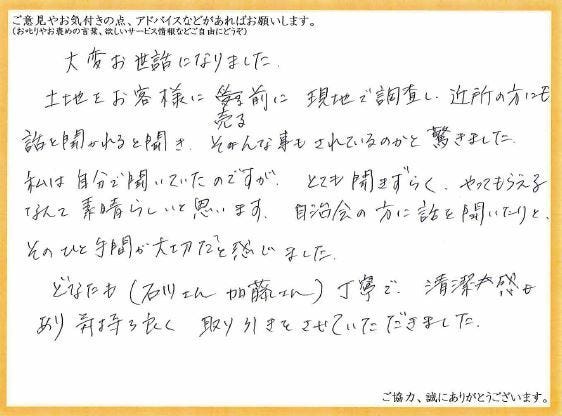 ご意見やお気付きの点、アドバイスなどがあればお願いします。
(お叱りやお褒めの言葉、欲しいサービス情報などご自由にどうぞ)
大変お世話になりました。
土地をお客様に売る前に 現地で調査し、近所の方にも
話を聞かれると聞き、そんな事もされているのかと驚きました。
私は自分で聞いていたのですが、とても聞きずらく、やってもらえる
なんて素晴らしいと思います。自治会の方に話を聞いたりと、
そのひと手間が大切だと感じました。
どなたも(石川さん 加藤さん)丁寧で、清潔感が
あり 気持ち良く 取り引きをさせていただきました。
ご協力、誠にありがとうございます。